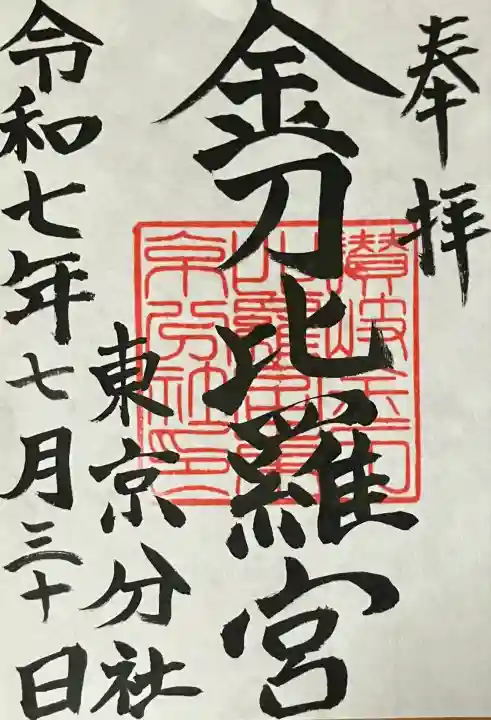 奉拝
金刀比羅宮
東京分社
令和七年七月三十日